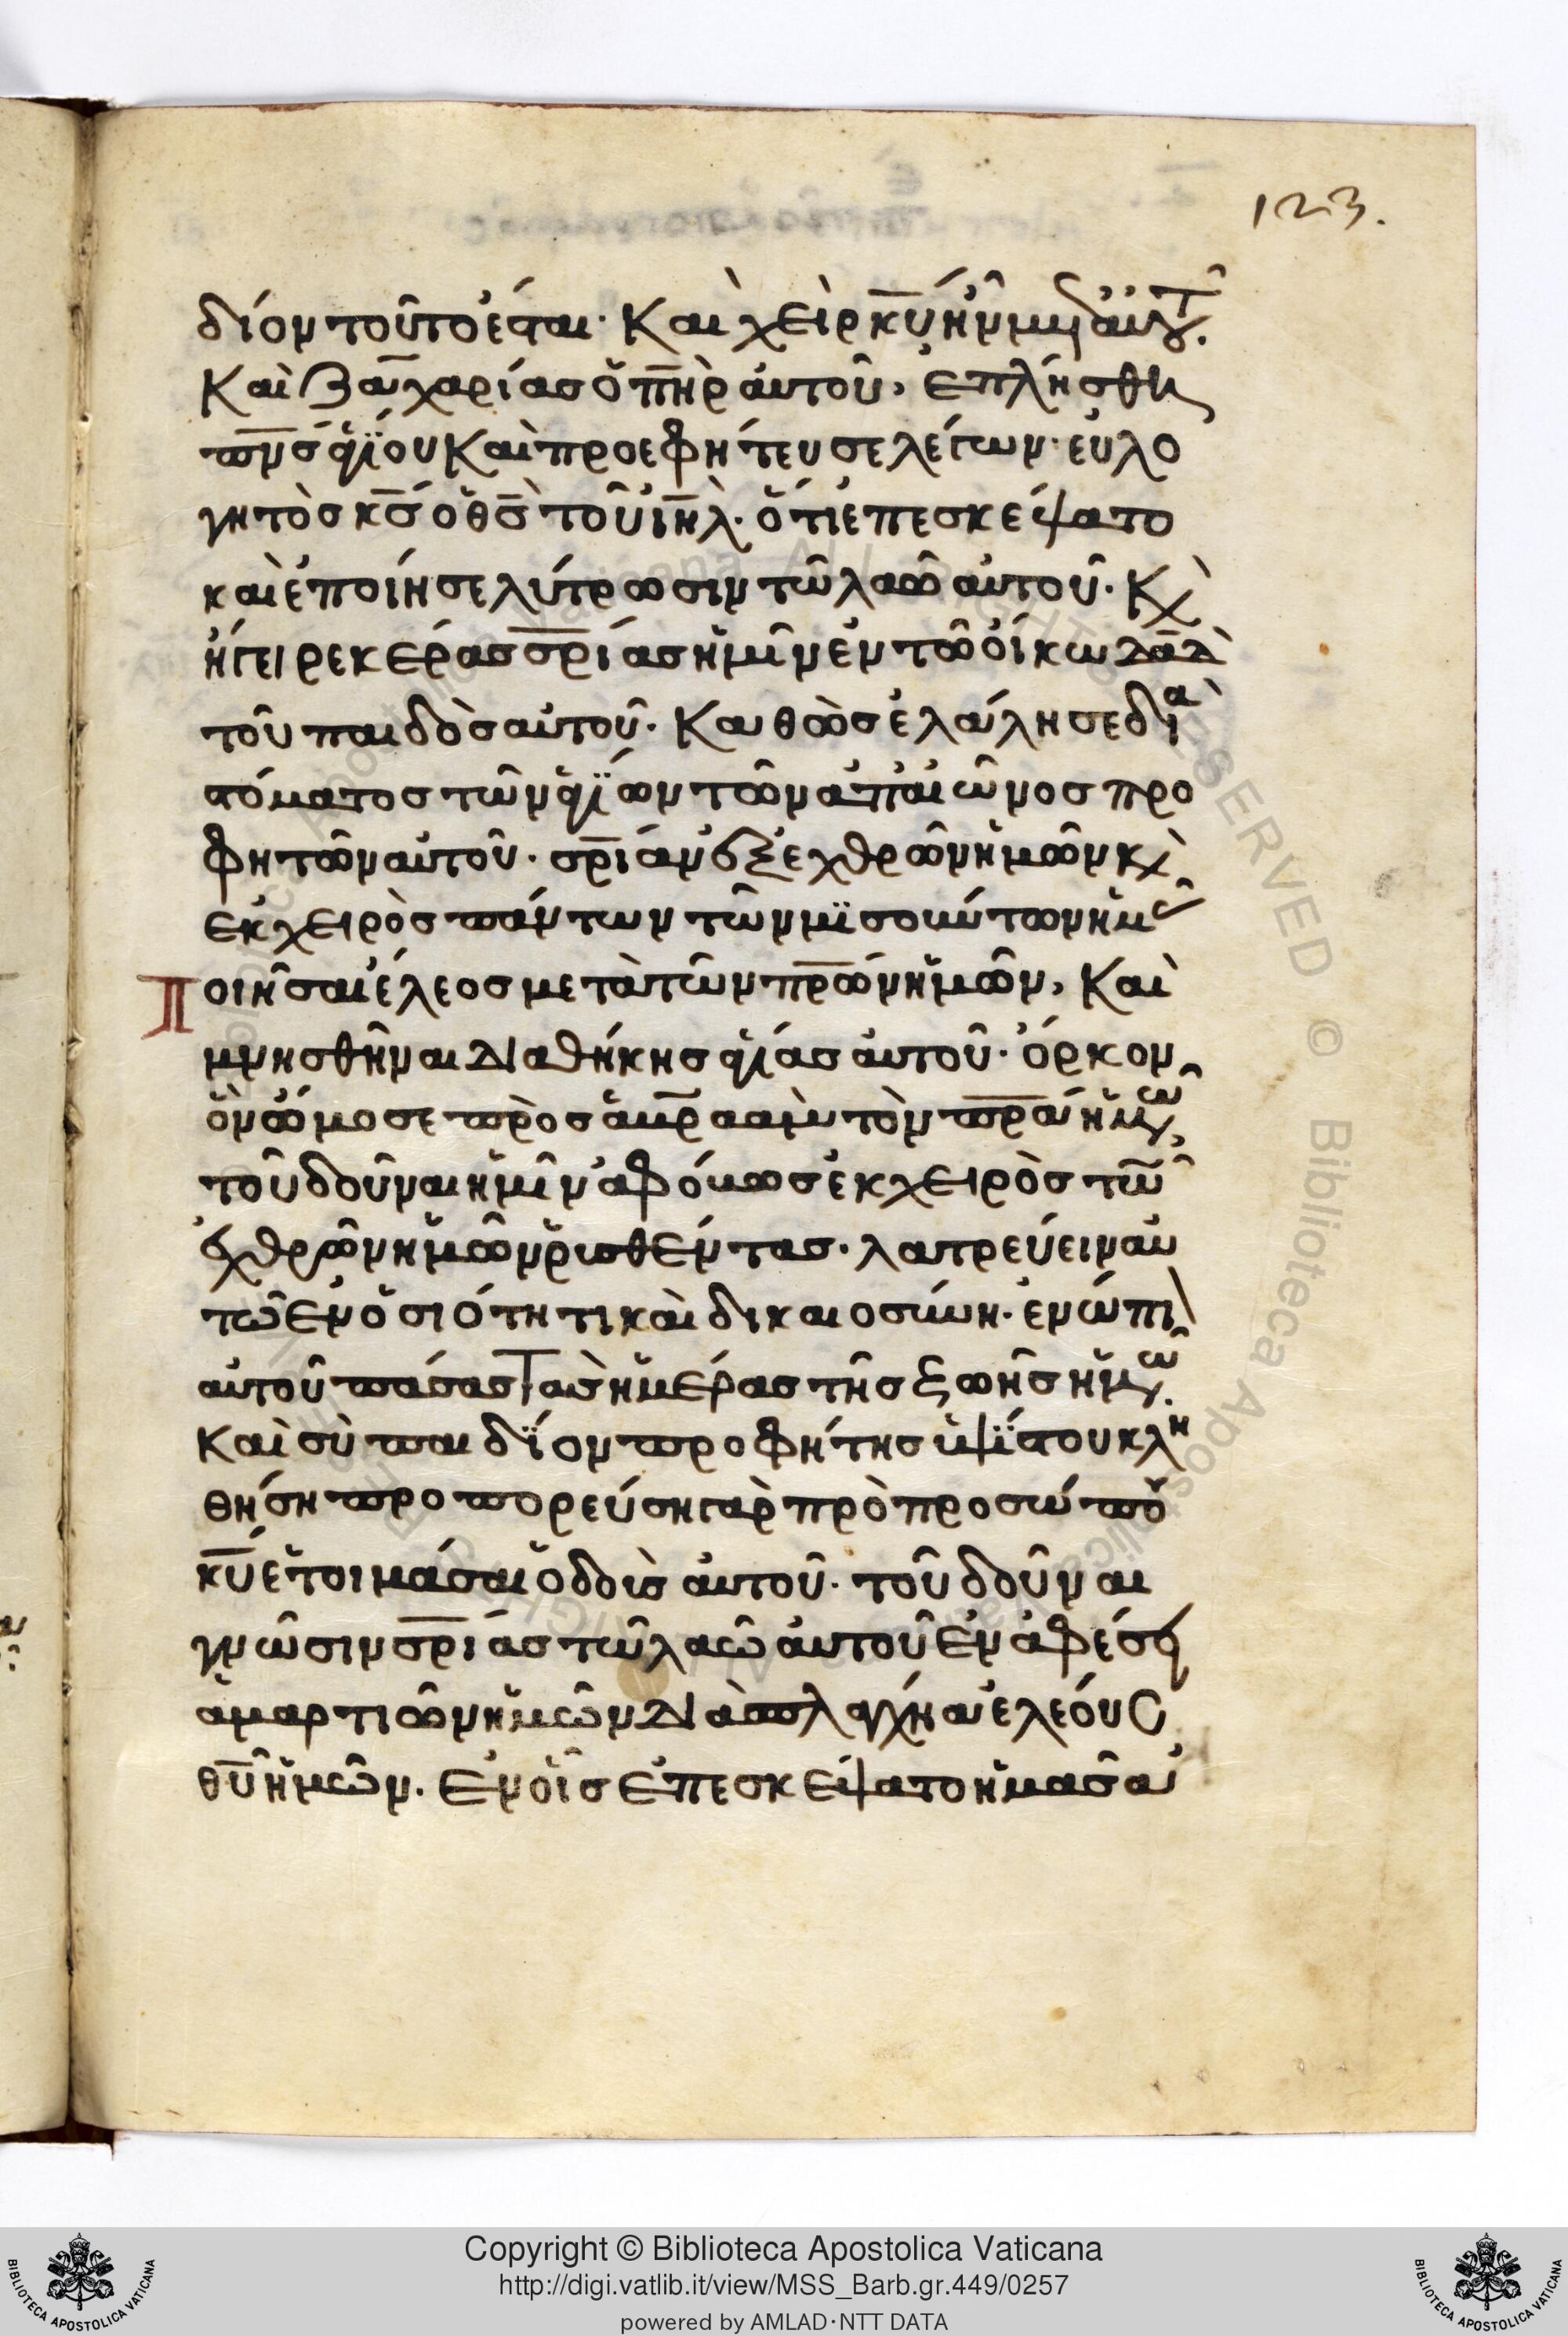 123.
διον τοῦτο ἔσται· Καὶ χεὶρ κ̅υ̅ ἦν μετ' αὐτοῦ.
Καὶ Ζαχαρίας ὁ π̅η̅ρ αὐτοῦ, ἐπλήσθη
π̅ν̅ς ἁγίου Καὶ προεφήτευσε λέγων· εὐλο
γητὸς κ̅ς̅ ὁ θ̅ς̅ τοῦ ι̅η̅λ̅· ὅτι ἐπεσκέψατο
καὶ ἐποίησε λύτρωσιν τῶ λαῶ αὐτοῦ· Κ̀
ἤγειρε κέρας σ̅ρ̅ίας ἡμῖν ἐν τῶ οἴκω δ̅α̅δ̅
τοῦ παιδὸς αὐτοῦ· Καθὼς ἐλάλησε διὰ
στόματος τῶν ἁγίων τῶν ἀπ' αἰῶνος προ
φητῶν αὐτοῦ· σ̅ρ̅ίαν ἐξ ἐχθρῶν ἡμῶν κ̀
ἐκ χειρὸς πάντων τῶν μισούντων ἡμᾶς
Ποιῆσαι ἔλεος μετὰ τῶν π̅ρ̅ων ἡμῶν, Καὶ
μνησθῆναι διαθήκης ἁγίας αὐτοῦ· ὅρκον
ὃν ὤμοσε πρὸς ἀβρααὰμ τὸν π̅ρ̅α ἡμῶν,
τοῦ δοῦναι ἡμῖν ἀφόβως ἐκ χειρὸς τῶν
ἐχθρῶν ἡμῶν ῥυσθέντας· λατρεύειν αὐ
τῶ ἐν ὁσιότητι καὶ δικαιοσύνη· ἐνώπι
αὐτοῦ πάσας τὰς ἡμέρας τῆς ζωῆς ἡμῶν.
Καὶ σὺ παιδίον προφήτης ὑψίστου κλη
θήση προπορεύση γὰρ πρὸ προσώπου
κ̅υ̅ ἑτοιμάσαι ὁδοὺς αὐτοῦ· τοῦ δοῦναι
γνῶσιν σ̅ρ̅ίας τῶ λαῶ αὐτοῦ ἐν ἀφέσει
ἁμαρτιῶν ἡμῶν Διὰ σπλάγχνα ἐλέους
θ̅υ̅ ἡμῶν. Ἐν οἷς ἐπεσκέψατο ἡμᾶς ἀ
Copyright © Biblioteca Apostolica Vaticana
http://digi.vatlib.it/view/MSS_Barb.gr.449/0257
powered by AMLAD·NTT DATA
BIBLIOTECA APOSTOLICA VATICANA
BIBLIOTECA APOSTOLICA VATICANA